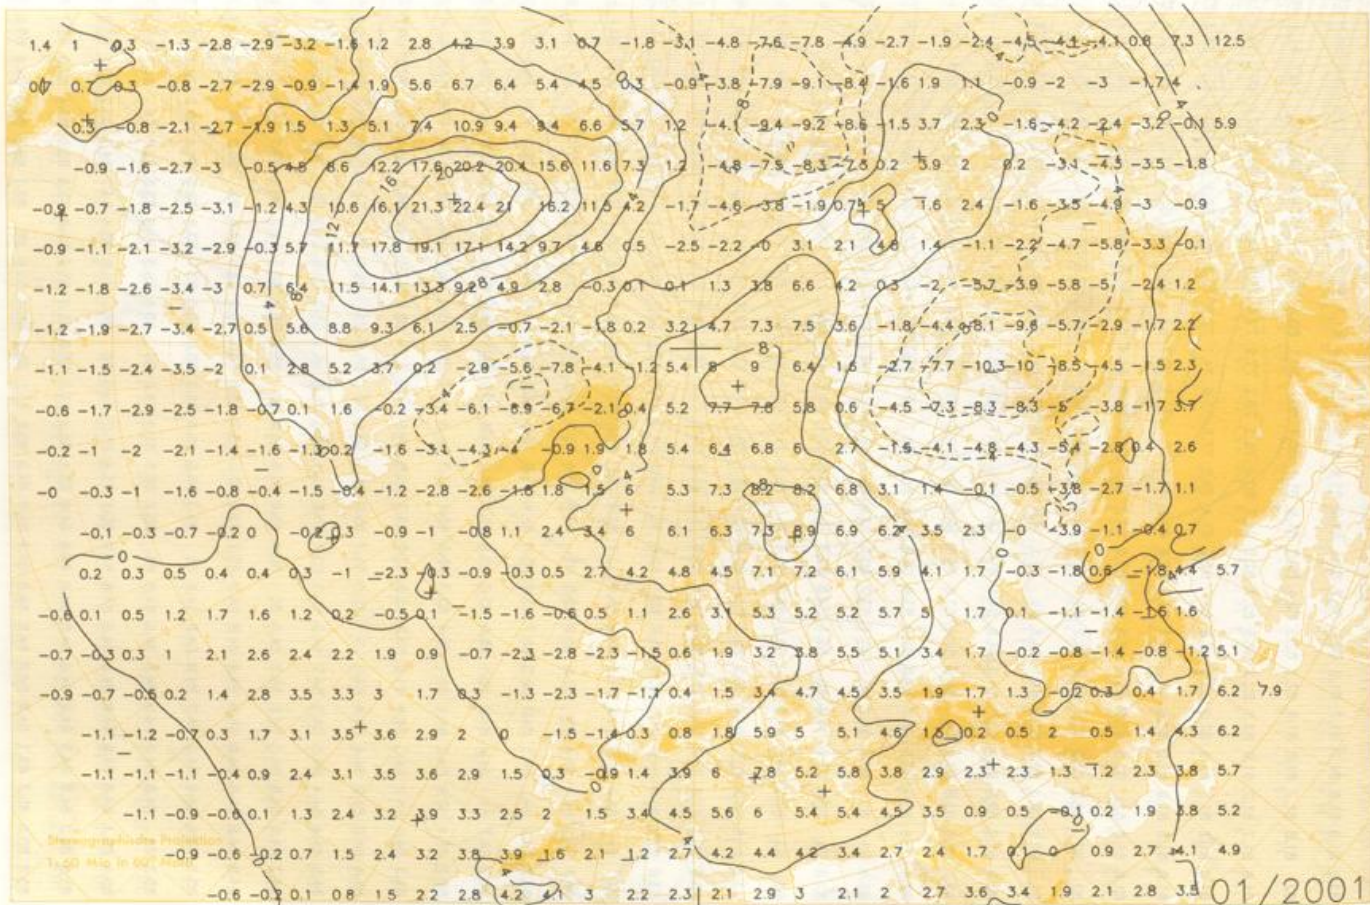 1.4 1 0.3 -1.3 -2.8 -2.9 -3.2 -1.6 1.2 2.8 4.2 3.9 3.1 0.7 -1.8 -3.1 -4.8 -7.6 -7.8 -4.9 -2.7 -1.9 -2.4 -4.5 -4.1 -4.1 0.8 7.3 12.5
0.7 0.7 0.3 -0.8 -2.7 -2.9 -0.9 -1.4 1.9 5.6 6.7 6.4 5.4 4.5 0.3 -0.9 -3.8 -7.9 -9.1 -8.4 -1.6 1.9 1.1 -0.9 -2 -3 -1.7 4
0.3 -0.8 -2.1 -2.7 -1.9 1.5 1.3 5.1 7.4 10.9 9.4 9.4 6.6 5.7 1.2 -4.1 -9.4 -9.2 -8.6 -1.5 3.7 2.3 -1.6 -4.2 -2.4 -3.2 -0.1 5.9
-0.9 -1.6 -2.7 -3 -0.5 4.8 8.6 12.2 17.6 20.2 20.4 15.6 11.6 7.3 1.2 -4.8 -7.5 -8.3 -2.3 0.2 3.9 2 0.2 -3.1 -4.3 -3.5 -1.8
-0.9 -0.7 -1.8 -2.5 -3.1 -1.2 4.3 10.6 16.1 21.3 22.4 21 16.2 11.5 4.2 -1.7 -4.6 -3.8 -1.9 0.7 5 1.6 2.4 -1.6 -3.5 -4.9 -3 -0.9
-0.9 -1.1 -2.1 -3.2 -2.9 -0.3 5.7 11.7 17.8 19.1 17.1 14.2 9.7 4.6 0.5 -2.5 -2.2 -0 3.1 2.1 4.8 1.4 -1.1 -2.2 -4.7 -5.8 -3.3 -0.1
-1.2 -1.8 -2.6 -3.4 -3 0.7 6.4 11.5 14.1 13.3 9.2 4.9 2.8 -0.3 0.1 0.1 1.3 3.8 6.6 4.2 0.3 -2 -3.7 -3.9 -5.8 -5 -2.4 1.2
-1.2 -1.9 -2.7 -3.4 -2.7 0.5 5.6 8.8 9.3 6.1 2.5 -0.7 -2.1 -1.8 0.2 3.2 4.7 7.3 7.5 3.6 -1.8 -4.4 -8.1 -9.6 -5.7 -2.9 -1.7 2.2
-1.1 -1.5 -2.4 -3.5 -2 0.1 2.8 5.2 3.7 0.2 -2.9 -5.6 -7.8 -4.1 -1.2 5.4 8 9 6.4 1.6 -2.7 -7.7 -10.3 -10 -8.5 -4.5 -1.5 2.3
-0.6 -1.7 -2.9 -2.5 -1.8 -0.7 0.1 1.6 -0.2 -3.4 -6.1 -8.9 -6.7 -2.1 0.4 5.2 7.7 7.8 5.8 0.6 -4.5 -7.3 -8.3 -8.3 -5 -3.8 -1.7 3.7
-0.2 -1 -2 -2.1 -1.4 -1.6 -1.3 0.2 -1.6 -3.1 -4.3 -4 -0.9 1.9 1.8 5.4 6.4 6.8 6 2.7 -1.5 -4.1 -4.8 -4.3 -5.4 -2.8 0.4 2.6
-0 -0.3 -1 -1.6 -0.8 -0.4 -1.5 -0.4 -1.2 -2.8 -2.6 -1.8 1.8 1.5 6 5.3 7.3 8.2 8.2 6.8 3.1 1.4 -0.1 -0.5 -3.8 -2.7 -1.7 1.1
-0.1 -0.3 -0.7 -0.2 0 -0.2 0.3 -0.9 -1 -0.8 1.1 2.4 3.4 6 6.1 6.3 7.3 8.9 6.9 6.2 3.5 2.3 -0 -3.9 -1.1 -0.4 0.7
0.2 0.3 0.5 0.4 0.4 0.3 -1 -2.3 -0.3 -0.9 -0.3 0.5 2.7 4.2 4.8 4.5 7.1 7.2 6.1 5.9 4.1 1.7 -0.3 -1.8 0.6 -1.8 4.4 5.7
-0.6 0.1 0.5 1.2 1.7 1.6 1.2 0.2 -0.5 0.1 -1.5 -1.6 -0.6 0.5 1.1 2.6 3.1 5.3 5.2 5.2 5.7 5 1.7 0.1 -1.1 -1.4 -1.6 1.6
-0.7 -0.3 0.3 1 2.1 2.6 2.4 2.2 1.9 0.9 -0.7 -2.3 -2.8 -2.3 -1.5 0.6 1.9 3.2 3.8 5.5 5.1 3.4 1.7 -0.2 -0.8 -1.4 -0.8 -1.2 5.1
-0.9 -0.7 -0.6 0.2 1.4 2.8 3.5 3.3 3 1.7 0.3 -1.3 -2.3 -1.7 -1.1 0.4 1.5 3.4 4.7 4.5 3.5 1.9 1.7 1.3 -0.2 0.3 0.4 1.7 6.2 7.9
-1.1 -1.2 -0.7 0.3 1.7 3.1 3.5 3.6 2.9 2 0 -1.5 -1.4 0.3 0.8 1.8 5.9 5 5.1 4.6 1.5 0.2 0.5 2 0.5 1.4 4.3 6.2
-1.1 -1.1 -1.1 -0.4 0.9 2.4 3.1 3.5 3.6 2.9 1.5 0.3 -0.9 1.4 3.9 6 7.8 5.2 5.8 3.8 2.9 2.3 2.3 1.3 1.2 2.3 3.8 5.7
-1.1 -0.9 -0.6 0.1 1.3 2.4 3.2 3.9 3.3 2.5 2 1.5 3.4 4.5 5.6 6 5.4 5.4 4.5 3.5 0.9 0.5 -0.1 0.2 1.9 3.8 5.2
Stereographische Projection
-0.9 -0.6 -0.2 0.7 1.5 2.4 3.2 3.8 3.9 1.6 2.1 1.2 2.7 4.2 4.4 4.2 3.4 2.7 2.4 1.7 0.1 0 0.9 2.7 4.1 4.9
-0.6 -0.2 0.1 0.8 1.5 2.2 2.8 4.2 4.1 3 2.2 2.3 2.1 2.9 3 2.1 2 2.7 3.6 3.4 1.9 2.1 2.8 3.5
01/2001